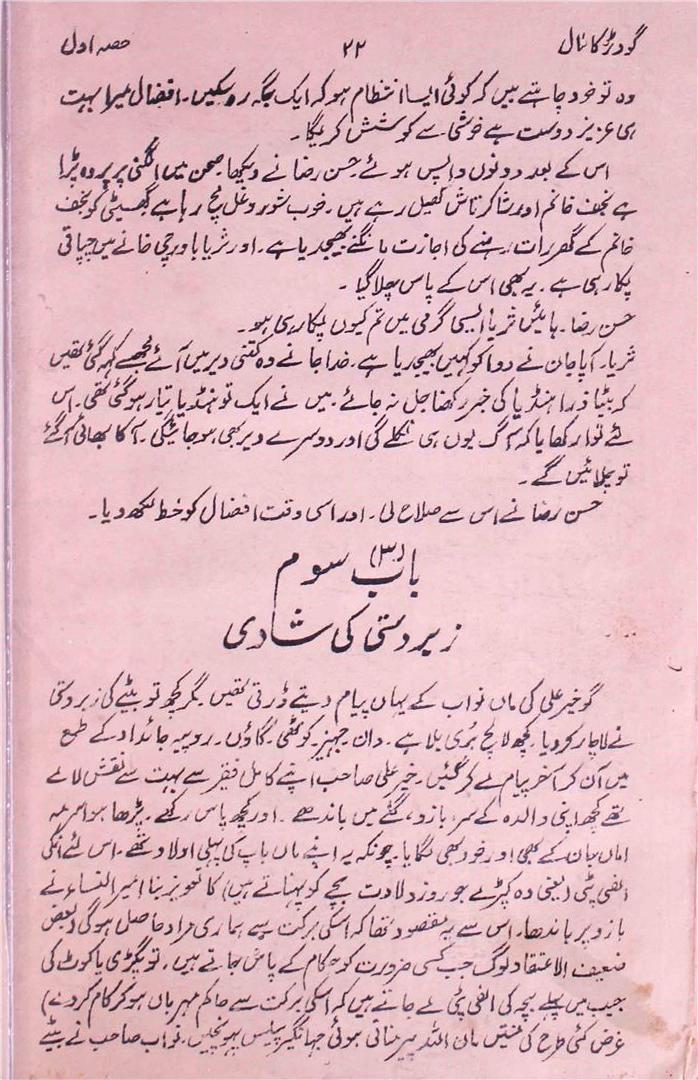 گودڑ کا لال ۲۲ حصہ اول
وہ تو خود چاہتے ہیں کہ کوئی ایسا انتظام ہو کہ ایک جگہ رہ سکیں۔ افضال میرا بہت
ہی عزیز دوست ہے خوشی سے کوشش کریگا۔
اس کے بعد دونوں واپس ہوئے۔ حسن رضا نے دیکھا صحن میں الگنی پر پردہ پڑا
ہے نجف خانم اور شاکر تاش کھیل رہے ہیں۔ خوب شور و غل مچ رہا ہے گھسیٹی کو نجف
خانم کے گھر رات رہنے کی اجازت مانگنے بھیجدیا ہے۔ اور ثریا باورچی خانے میں چپاتی
پکا رہی ہے۔ یہ بھی اس کے پاس چلا گیا۔
حسن رضا۔ ہائیں ثریا ایسی گرمی میں تم کیوں پکا رہی ہو۔
ثریا۔ آپا جان نے ددا کو کہیں بھیجدیا ہے۔ خدا جانے وہ کتنی دیر میں آئے مجھے کہہ گئی تھیں
کہ بیٹا ذرا ہنڈیا کی خبر رکھنا جل نہ جائے۔ میں نے ایک تو ہنڈیا تیار ہو گئی تھی۔ اس
لئے توا رکھا یا کہ آگ یوں ہی نکلے گی اور دوسرے دیر بھی ہو جائیگی۔ آکا بھائی آ گئے
تو چلائیں گے۔
حسن رضا نے اس سے صلاح لی۔ اور اسی وقت افضال کو خط لکھ دیا۔
باب سوم (۳)
زبردستی کی شادی
گو خیر علی کی ماں نواب کے یہاں پیام دیتے ڈرتی تھیں۔ مگر کچھ تو بیٹے کی زبردستی
نے لاچار کر دیا۔ کچھ لالچ بُری بلا ہے۔ دان۔ جہیز۔ کوٹھی۔ گاؤں۔ روپیہ جائداد کے طمع
میں آن کر آخر پیام لے کر گئیں۔ خیر علی صاحب اپنے کامل فقیر سے بہت سے نقش لائے
تھے کچھ اپنی والدہ کے سر، بازو، گلے میں باندھے۔ اور کچھ پاس رکھے۔ پڑھا ہوا سرمہ
اماں جان کے بھی اور خود بھی لگایا۔ چونکہ یہ اپنے ماں باپ کی پہلی اولاد تھے۔ اس لئے انکی
الفی پٹی (یعنی وہ کپڑے جو روز ولادت بچے کو پہناتے ہیں) کا تعویز بنا امیر النساء نے
بازو پر باندھا۔ اس سے یہ مقصود تھا کہ اسکی برکت سے ہماری مراد حاصل ہوگی (بعض
ضعیف الاعتقاد لوگ جب کسی ضرورت کو حکام کے پاس جاتے ہیں۔ تو پگڑی یا کوٹ کی
جیب میں پہلے بچہ کی الفی پٹی لے جاتے ہیں کہ اسکی برکت سے حاکم مہرباں ہو کر کام کر دے)
غرض کئی طرح کی منتیں مان اللہ پیر مناتی ہوئی جہانگیر پیلیس پہونچیں۔ نواب صاحب نے بیٹے